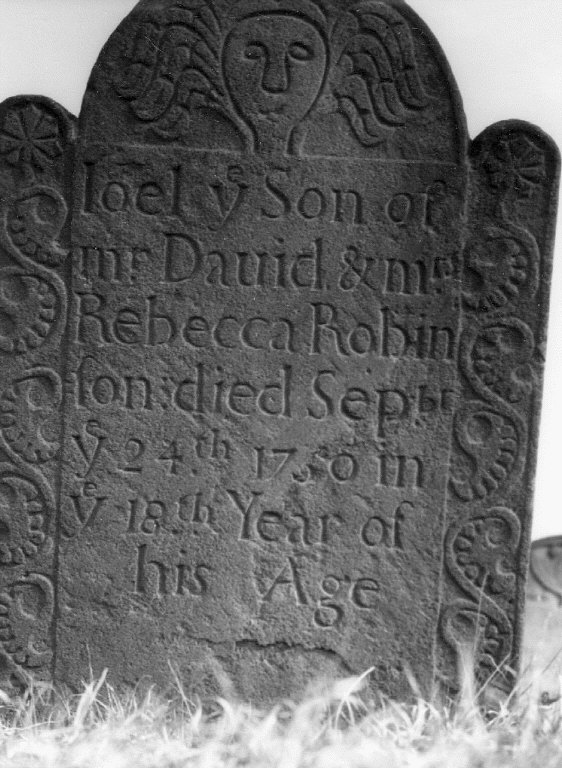 Ioel yᵉ Son of
mʳ Dauid & mʳˢ
Rebecca Robin
ſon: died Sepᵇʳ
yᵉ 24ᵗʰ 1750 in
yᵉ 18ᵗʰ Year of
his Age